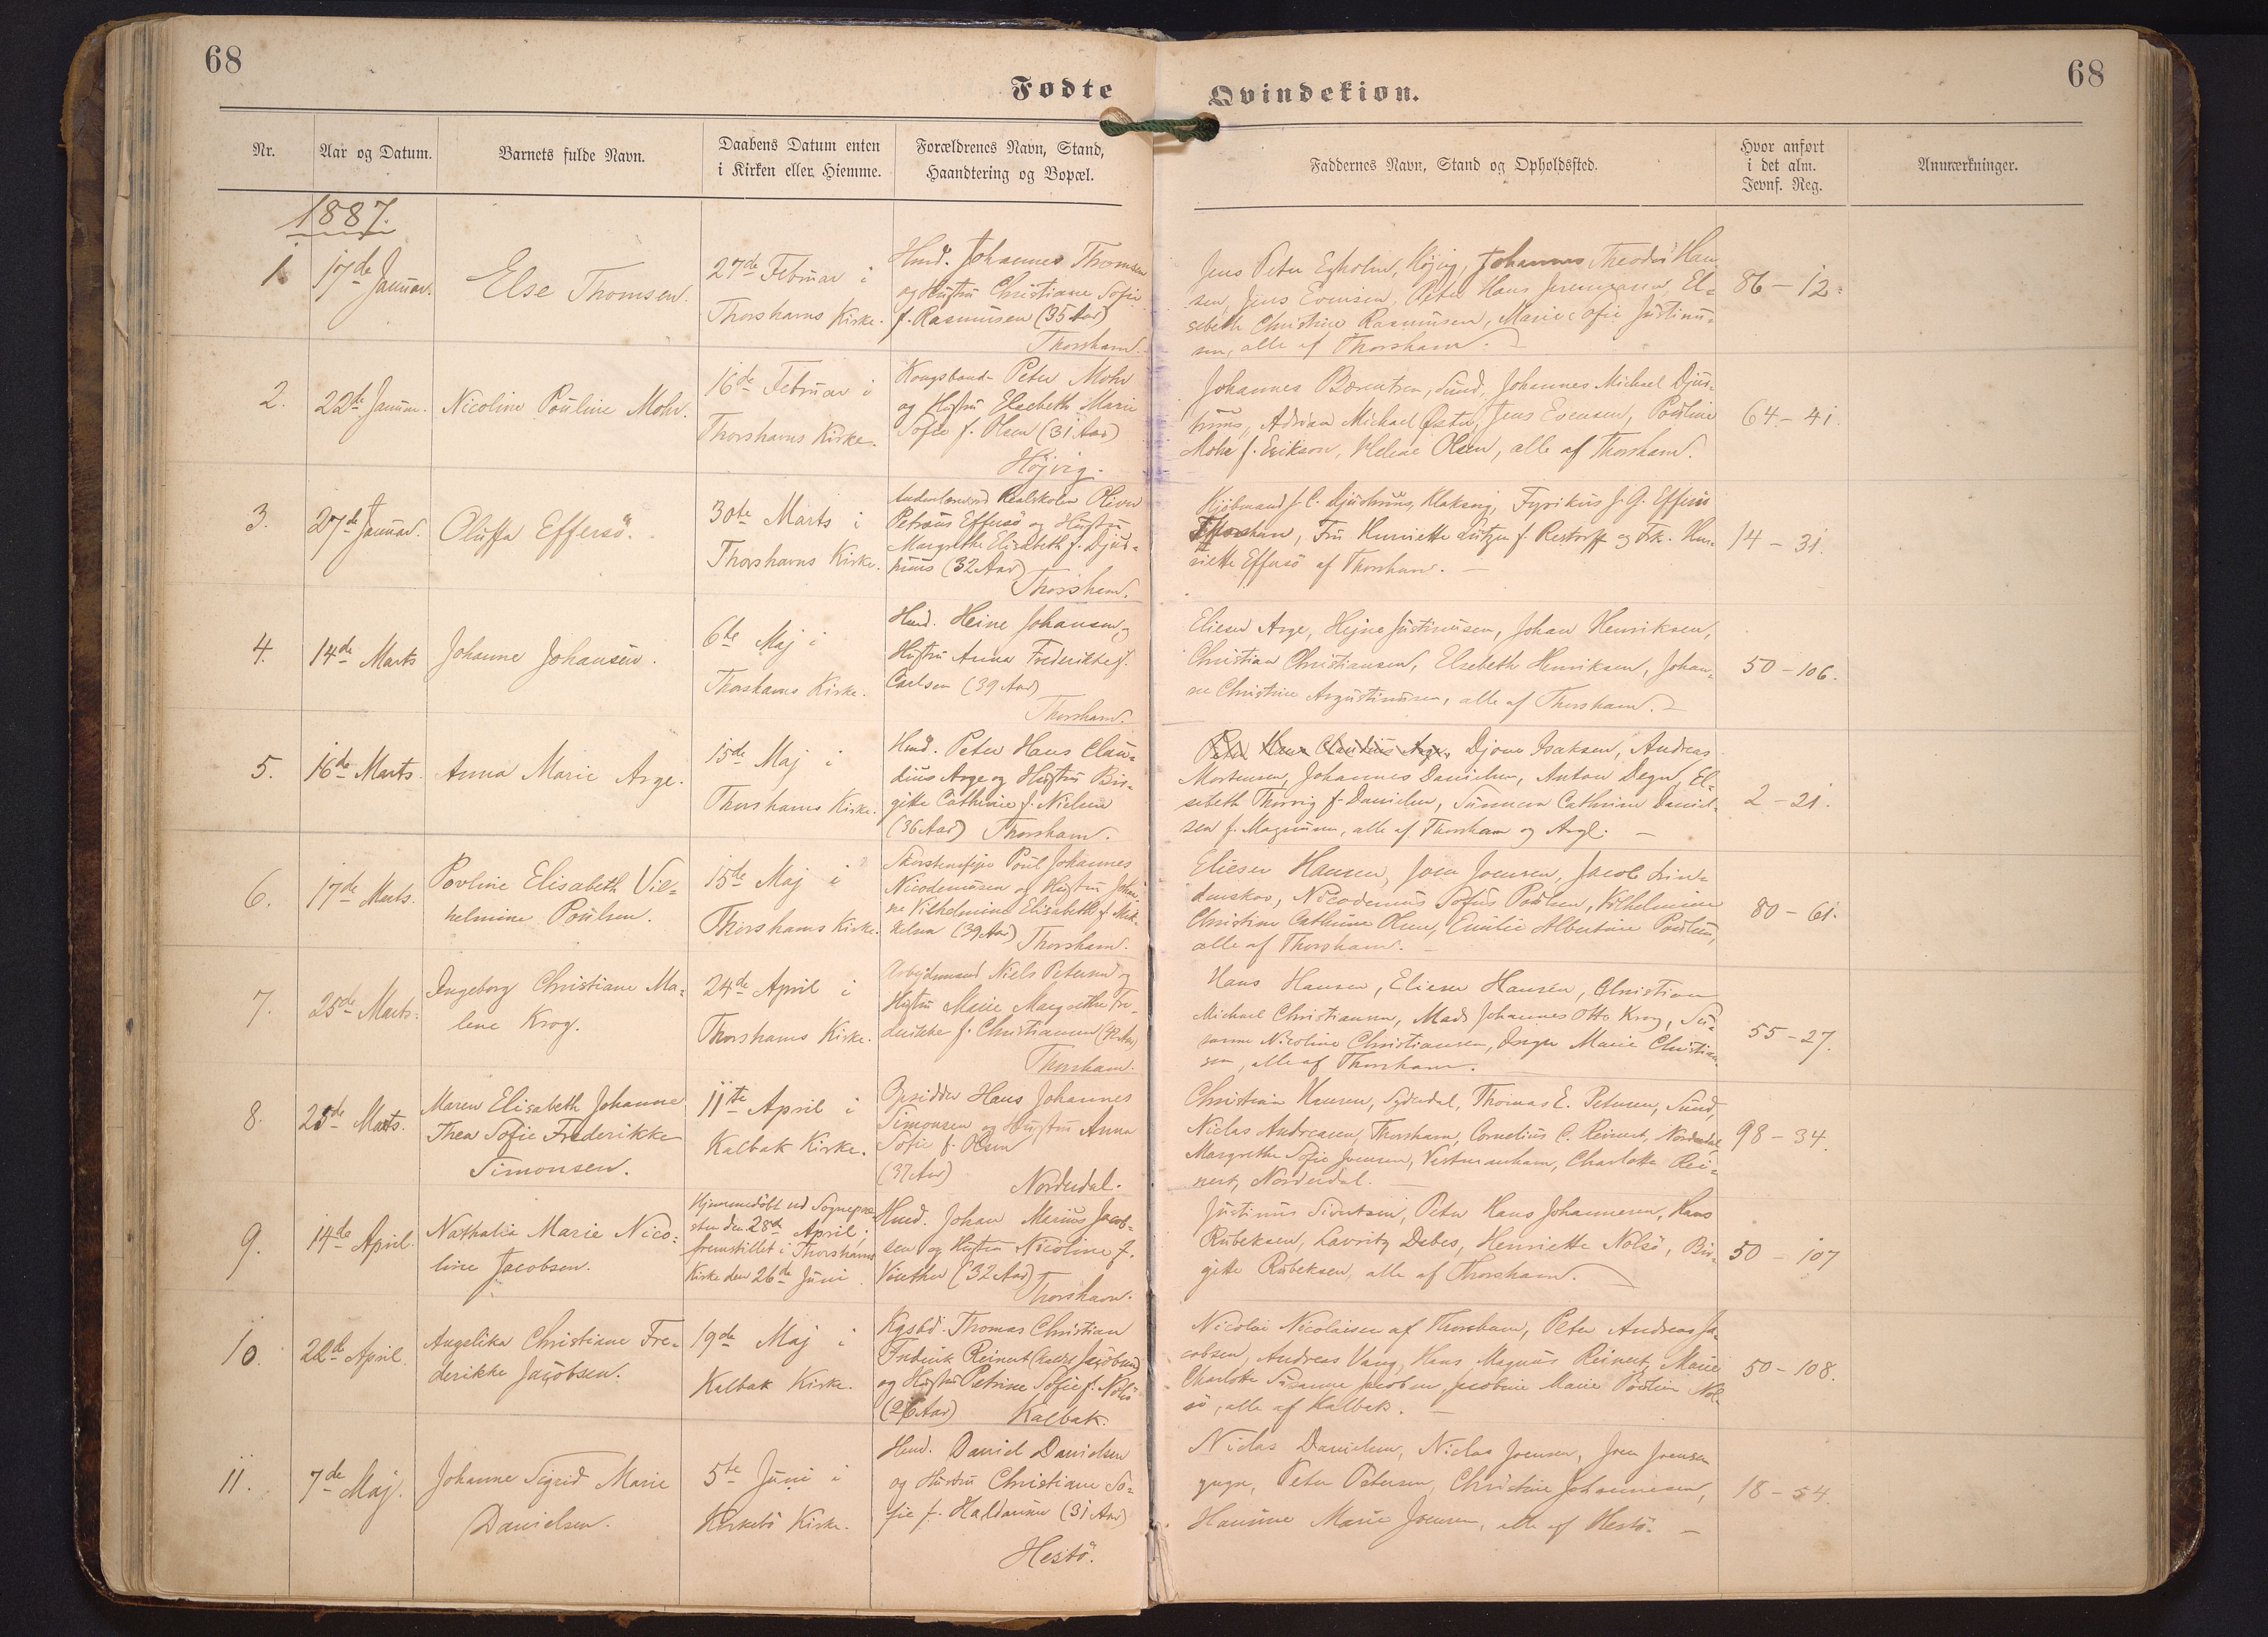 68
68
Fødte
Qvindekiøn.
Nr.
Aar og Datum.
Barnets fulde Navn.
Daabens Datum enten
i Kirken eller Hiemme.
Forældrenes Navn, Stand,
Haandtering og Bopæl.
Faddernes Navn, Stand og Opholdssted.
Hvor anført
i det alm.
Jevnf. Reg.
Anmærkninger.
1887.
1.
17de Januar.
Else Thomsen.
27de Februar i
Thorshavns Kirke.
Hmd. Johannes Thomsen
og Hustru Christiane Sofie
f. Rasmussen (35 Aar)
Thorshavn.
Jens Peter Egholm, Højvig, Johannes Theodor Han
sen, Jens Evensen, Peter Hans El=
sebeth Christine Rasmussen, Marie Sofie Justinu=
sen, alle af Thorshavn.
86 - 12.
2.
22de Januar.
Nicoline Pouline Mohr.
16de Februar i
Thorshavns Kirke.
Kongsbond. Peter Mohr
og Hustru Elsebeth Marie
Sofie f. Olsen (31 Aar)
Højvig.
Johannes Bærentsen, Sund, Johannes Michael Djur=
huus, Adrian Michael Øster, Jens Evensen, Pouline
Mohr f. Erikson, Helene Olsen, alle af Thorshavn.
64 - 41.
3.
27de Januar.
Oluffa Effersö.
30te Marts i
Thorshavns Kirke.
Realskolen Oliver
Petræus Effersö og Hustru
Margrethe Elisabeth f. Djur=
huus (32 Aar)
Thorshavn.
Kjöbmand J. C. Djurhuus, Klaksvig, Fyrikus J. G. Effersö
Thorshavn, Fru Henriette Lützen f. Restorff og Frk. Hen=
riette Effersö af Thorshavn.
14 - 31.
4.
14de Marts
Johanne Johansen.
6te Maj i
Thorshavns Kirke.
Hmd. Heine Johansen og
Hustru Anna Frederikke f.
Carlsen (39 Aar)
Thorshavn.
Elieser Arge, Hejne Justinusen, Johan Henriksen,
Christian Christiansen, Elsebeth Henriksen, Johan=
ne Christine Augustinusen, alle af Thorshavn.
50 - 106.
5.
16de Marts.
Anna Marie Arge.
15de Maj i
Thorshavns Kirke.
Hmd. Peter Hans Clau=
dius Arge og Hustru Bir=
gitte Cathrine f. Nielsen
(36 Aar) Thorshavn.
Peter Hans Claudius Arge, Djoner Isaksen, Andreas
Mortensen, Johannes Danielsen, Anton Degn, El=
sebeth Thorvig f. Danielsen, Sunneva Cathrine Daniel=
sen f. Magnussen, alle af Thorshavn og Argl.
2 - 21.
6.
17de Marts.
Povline Elisabeth Vil=
helmine Poulsen.
15de Maj i
Thorshavns Kirke.
Skorstensfejer Poul Johannes
Nicodemusen og Hustru Johan=
ne Vilhelmine Elisabeth f. Mik=
kelsen (39 Aar) Thorshavn.
Elieser Hansen, Joen Joensen, Jacob Lin=
denskov, Nicodemus Sofus Poulsen, Vilhelmine
Christine Cathrine Olsen, Emilie Albertine Poulsen,
alle af Thorshavn.
80 - 61.
7.
25de Marts.
Ingeborg Christiane Ma=
lene Krog.
24de April i
Thorshavns Kirke.
Arbejdsmand Niels Petersen og
Hustru Marie Margrethe Fre=
derikke f. Christiansen (42 Aar)
Thorshavn.
Hans Hansen, Elieser Hansen, Christian
Michael Christiansen, Mads Johannes Otto Krog, Su=
sanne Nicoline Christiansen, Inger Marie Christian=
sen, alle af Thorshavn.
55 - 27.
8.
25de Marts.
Maren Elisabeth Johanne
Thea Sofie Frederikke
Simonsen.
11te April i
Kalbak Kirke.
Opsidder Hans Johannes
Simonsen og Hustru Anna
Sofie f. Olsen
(37 Aar)
Norderdal.
Christian Hansen, Syderdal, Thomas E. Petersen, Sund,
Niclas Andreasen, Thorshavn, Cornelius C. Reinert, Norderdal,
Margrethe Sofie Joensen, Vestmanhavn, Charlotte Rei=
nert, Norderdal.
98 - 34.
9.
14de April.
Nathalia Marie Nico=
line Jacobsen.
Hjemmedöbt ved Sognepræ=
sten den 28de April,
fremstillet i Thorshavns
Kirke den 26de Juni.
Hmd. Johan Marius Jacob=
sen og Hustru Nicoline f.
Vinther (32 Aar)
Thorshavn.
Justinus Sivertsen, Peter Hans Johannesen, Hans
Rubeksen, Lavritz Debes, Henriette Nolsö, Bir=
gitte Rubeksen, alle af Thorshavn.
50 - 107
10.
22de April.
Angelika Christiane Fre=
derikke Jacobsen.
19de Maj i
Kalbak Kirke.
Kgsbd. Thomas Christian
Frederik Reinert (kaldt Jacobsen)
og Hustru Petrine Sofie f. Nolsö
(26 Aar) Kalbak.
Nicolai Nicolaisen af Thorshavn, Peter Andreas Ja=
cobsen, Andreas Vang, Hans Magnus Reinert, Marie
Charlotte Susanne Jacobsen, Jacobine Marie Pouline Nol=
sö, alle af Kalbak.
50 - 108.
11.
7de Maj.
Johanne Sigrid Marie
Danielsen.
5te Juni i
Kirkebö Kirke.
Hmd. Daniel Danielsen
og Hustru Christiane So=
fie f. Haldansen (31 Aar)
Hestö.
Niclas Danielsen, Niclas Joensen, Joen Joensen
yngre, Peter Petersen, Christine Johannesen,
Hansine Marie Joensen, alle af Hestö.
18 - 54.